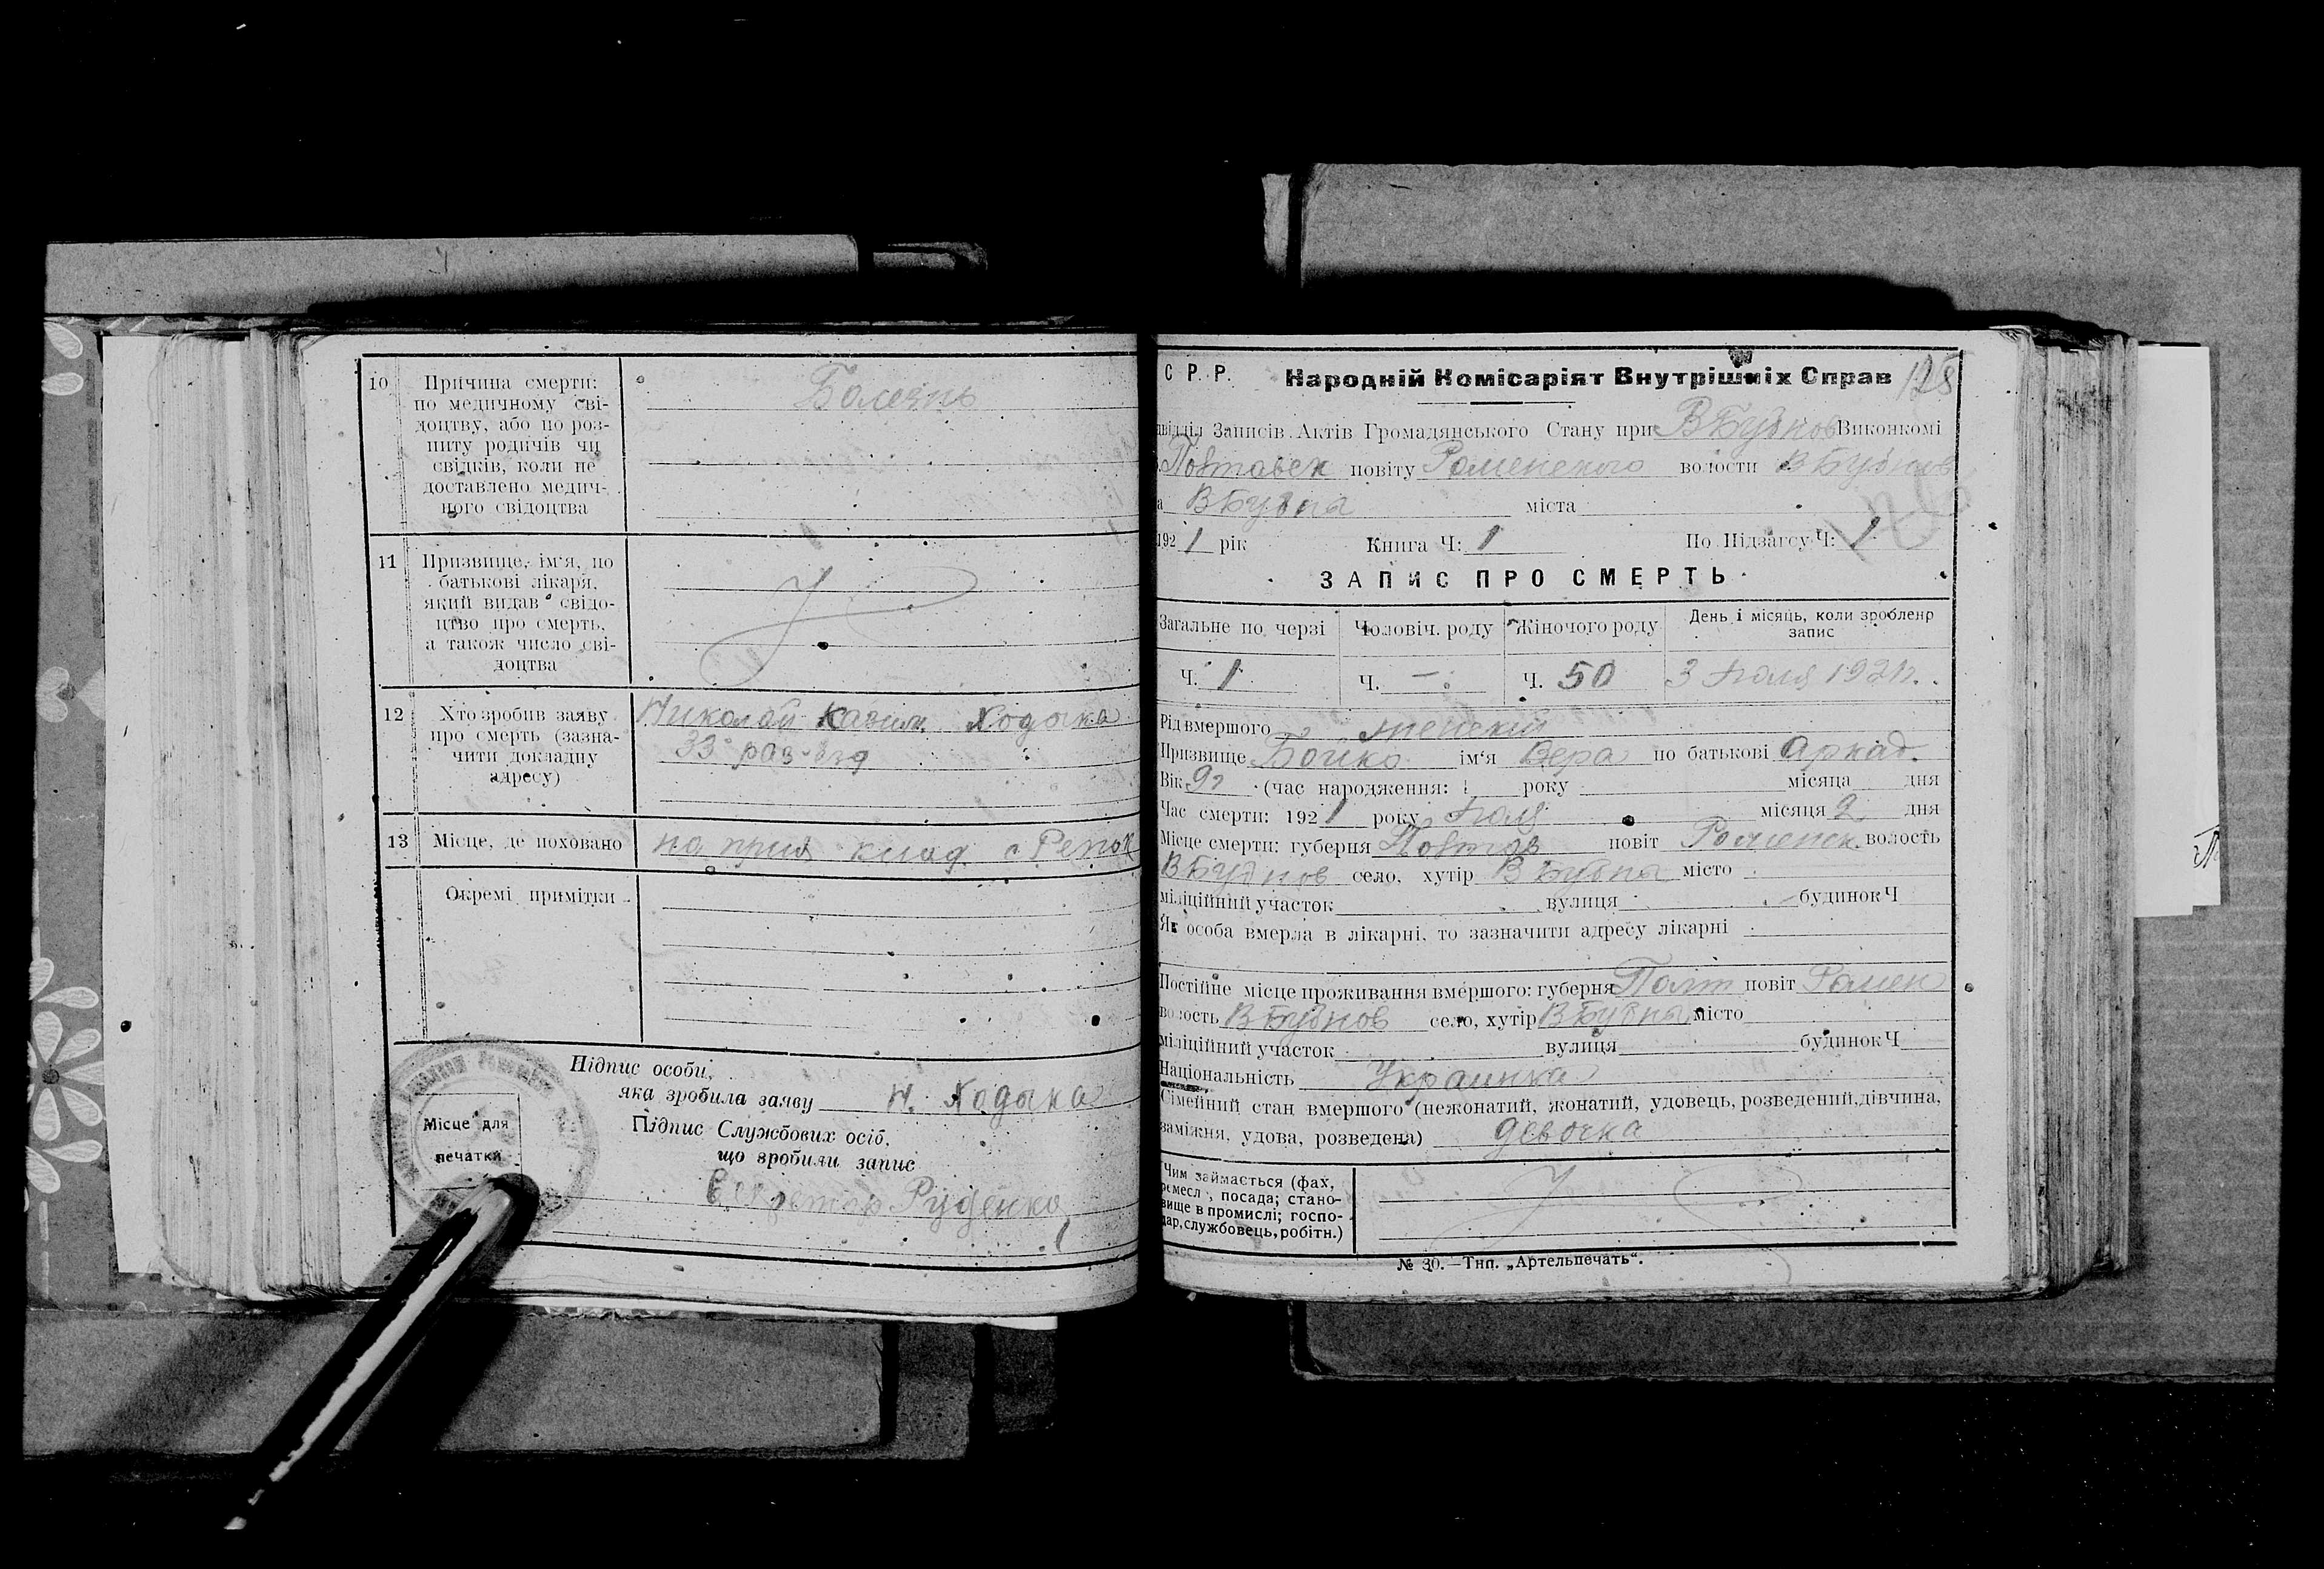 10 Причина смерти:
по медичному сві-
доцтву, або по роз-
питу родичів чи
свідків, коли не
доставлено медич-
ного свідоцтва
Болезнь
11 Призвище, ім'я, по
батькові лікаря,
який видав свідо-
цтво про смерть,
а також число сві-
доцтва
12 Хто зробив заяву
про смерть (зазна-
чити докладну
адресу)
Николай Ходака
33
13 Місце, де поховано
на клад. с
Окремі примітки
Підпис особи,
яка зробила заяву Н. Ходака
Місце для
печатки
Підпис Службових осіб,
що зробили запис
Секретар Руденко
С Р. Р. Народній Комісаріят Внутрішніх Справ 128
двідділ Записів Актів Громадянського Стану при ВБубнов Виконкомі
Повтавск повіту Роменского волости ВБубнов
а ВБубна міста
1921 рік Книга Ч: 1 По Підзагсу Ч: 1
ЗАПИС ПРО СМЕРТЬ
Загальне по черзі Чоловіч. роду Жіночого роду День і місяць, коли зроблено
запис
Ч. 1 Ч. — Ч. 50 3 1921 г.
Рід вмершого женский
Призвище Бойко ім'я Вера по батькові Аркад.
Вік (час народження: 1 року місяца дня
Час смерти: 1921 року місяця 2 дня
Місце смерти: губерня Повтав повіт Роменск. волость
ВБубнов село, хутір ВБубна місто
міліційний участок вулиця будинок Ч
Як особа вмерла в лікарні, то зазначити адресу лікарні
Постійне місце проживання вмершого: губерня Полт повіт Ромен
волость ВБубнов село, хутір ВБубна місто
міліційний участок вулиця будинок Ч
Національність Украинка
Сімейний стан вмершого (нежонатий, жонатий, удовець, розведений, дівчина,
заміжня, удова, розведена) девочка
Чим займається (фах,
ремесл , посада; стано-
вище в промислі; госпо-
дар, службовець, робітн.)
№ 30.—Тип. „Артельпечать“.